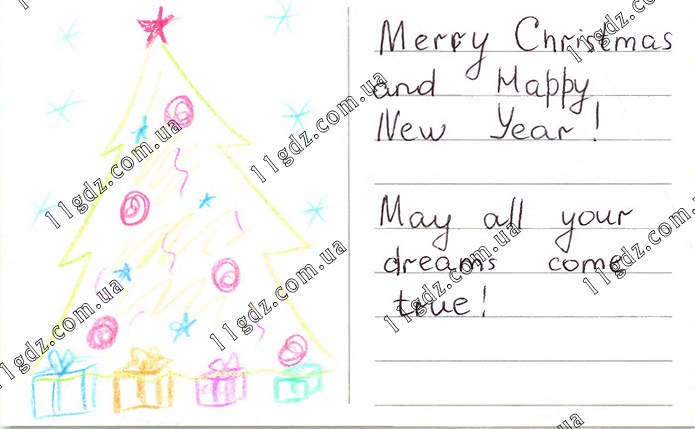 Merry Christmas
and Happy
New Year!
May all your
dreams come
true!
11gdz.com.ua
11gdz.com.ua
11gdz.com.ua
11gdz.com.ua
11gdz.com.ua
11gdz.com.ua
11gdz.com.ua